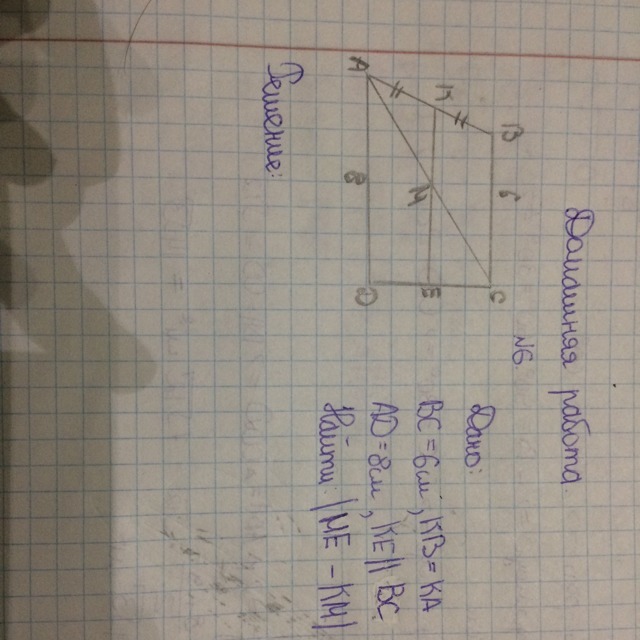 Домашняя работа
N6
Дано:
BC = 6м, KB = KA
AD = 8м, KE || BC
Найти: |ME - KM|
A
K
B
6
M
8
D
E
C
Решение: